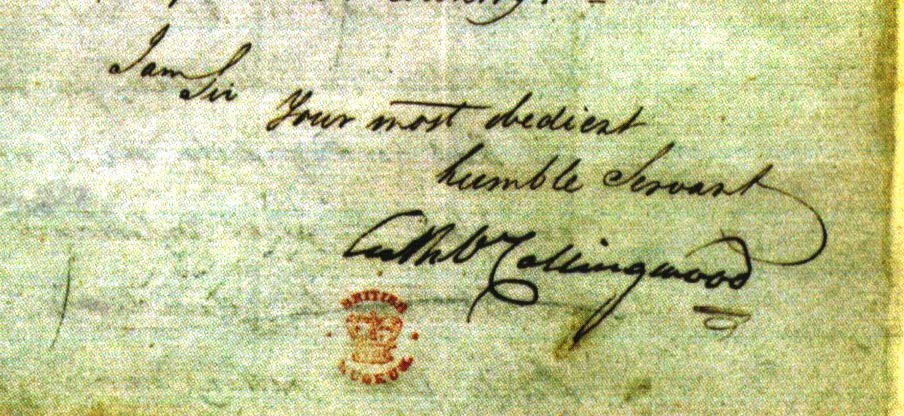 I am
Sir
Your most obedient
humble Servant
Cuthbt Collingwood
BRITISH
MUSEUM